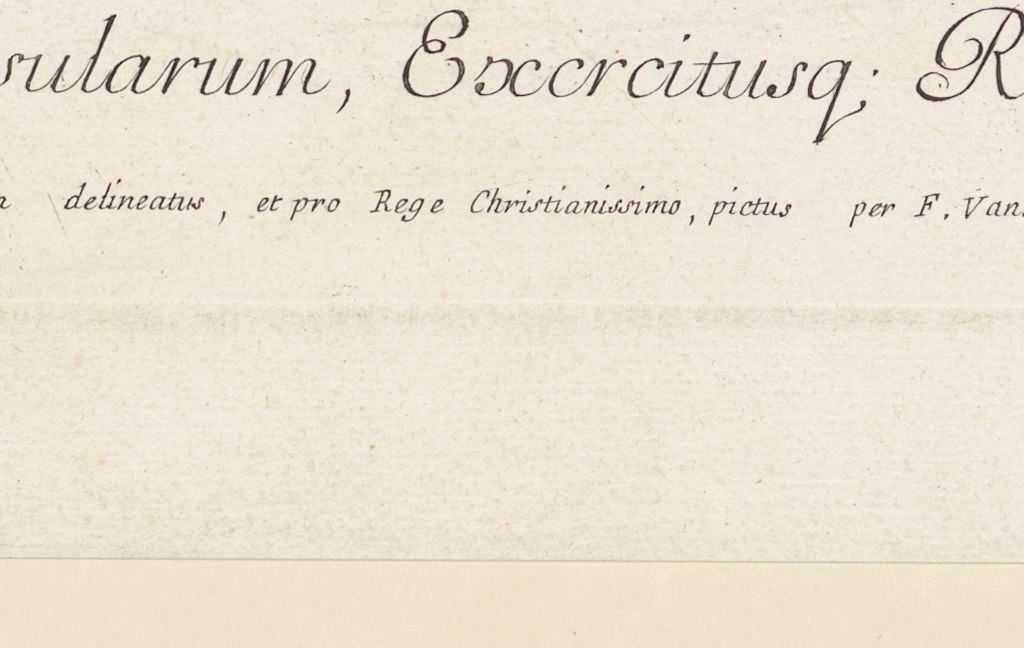 sularum, Exercitusq; R
delineatus, et pro Rege Christianissimo, pictus per F. Van